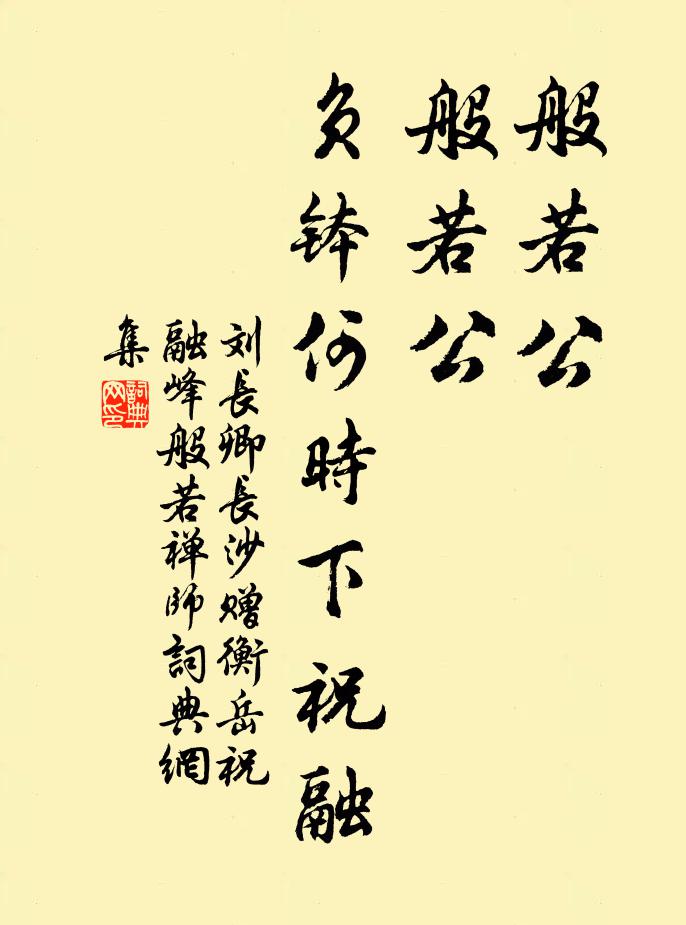 般若公
般若公
负钵何時下祝融
刘長卿長沙赠衡岳祝
融峰般若禅師詞典網
集
詞典
网印